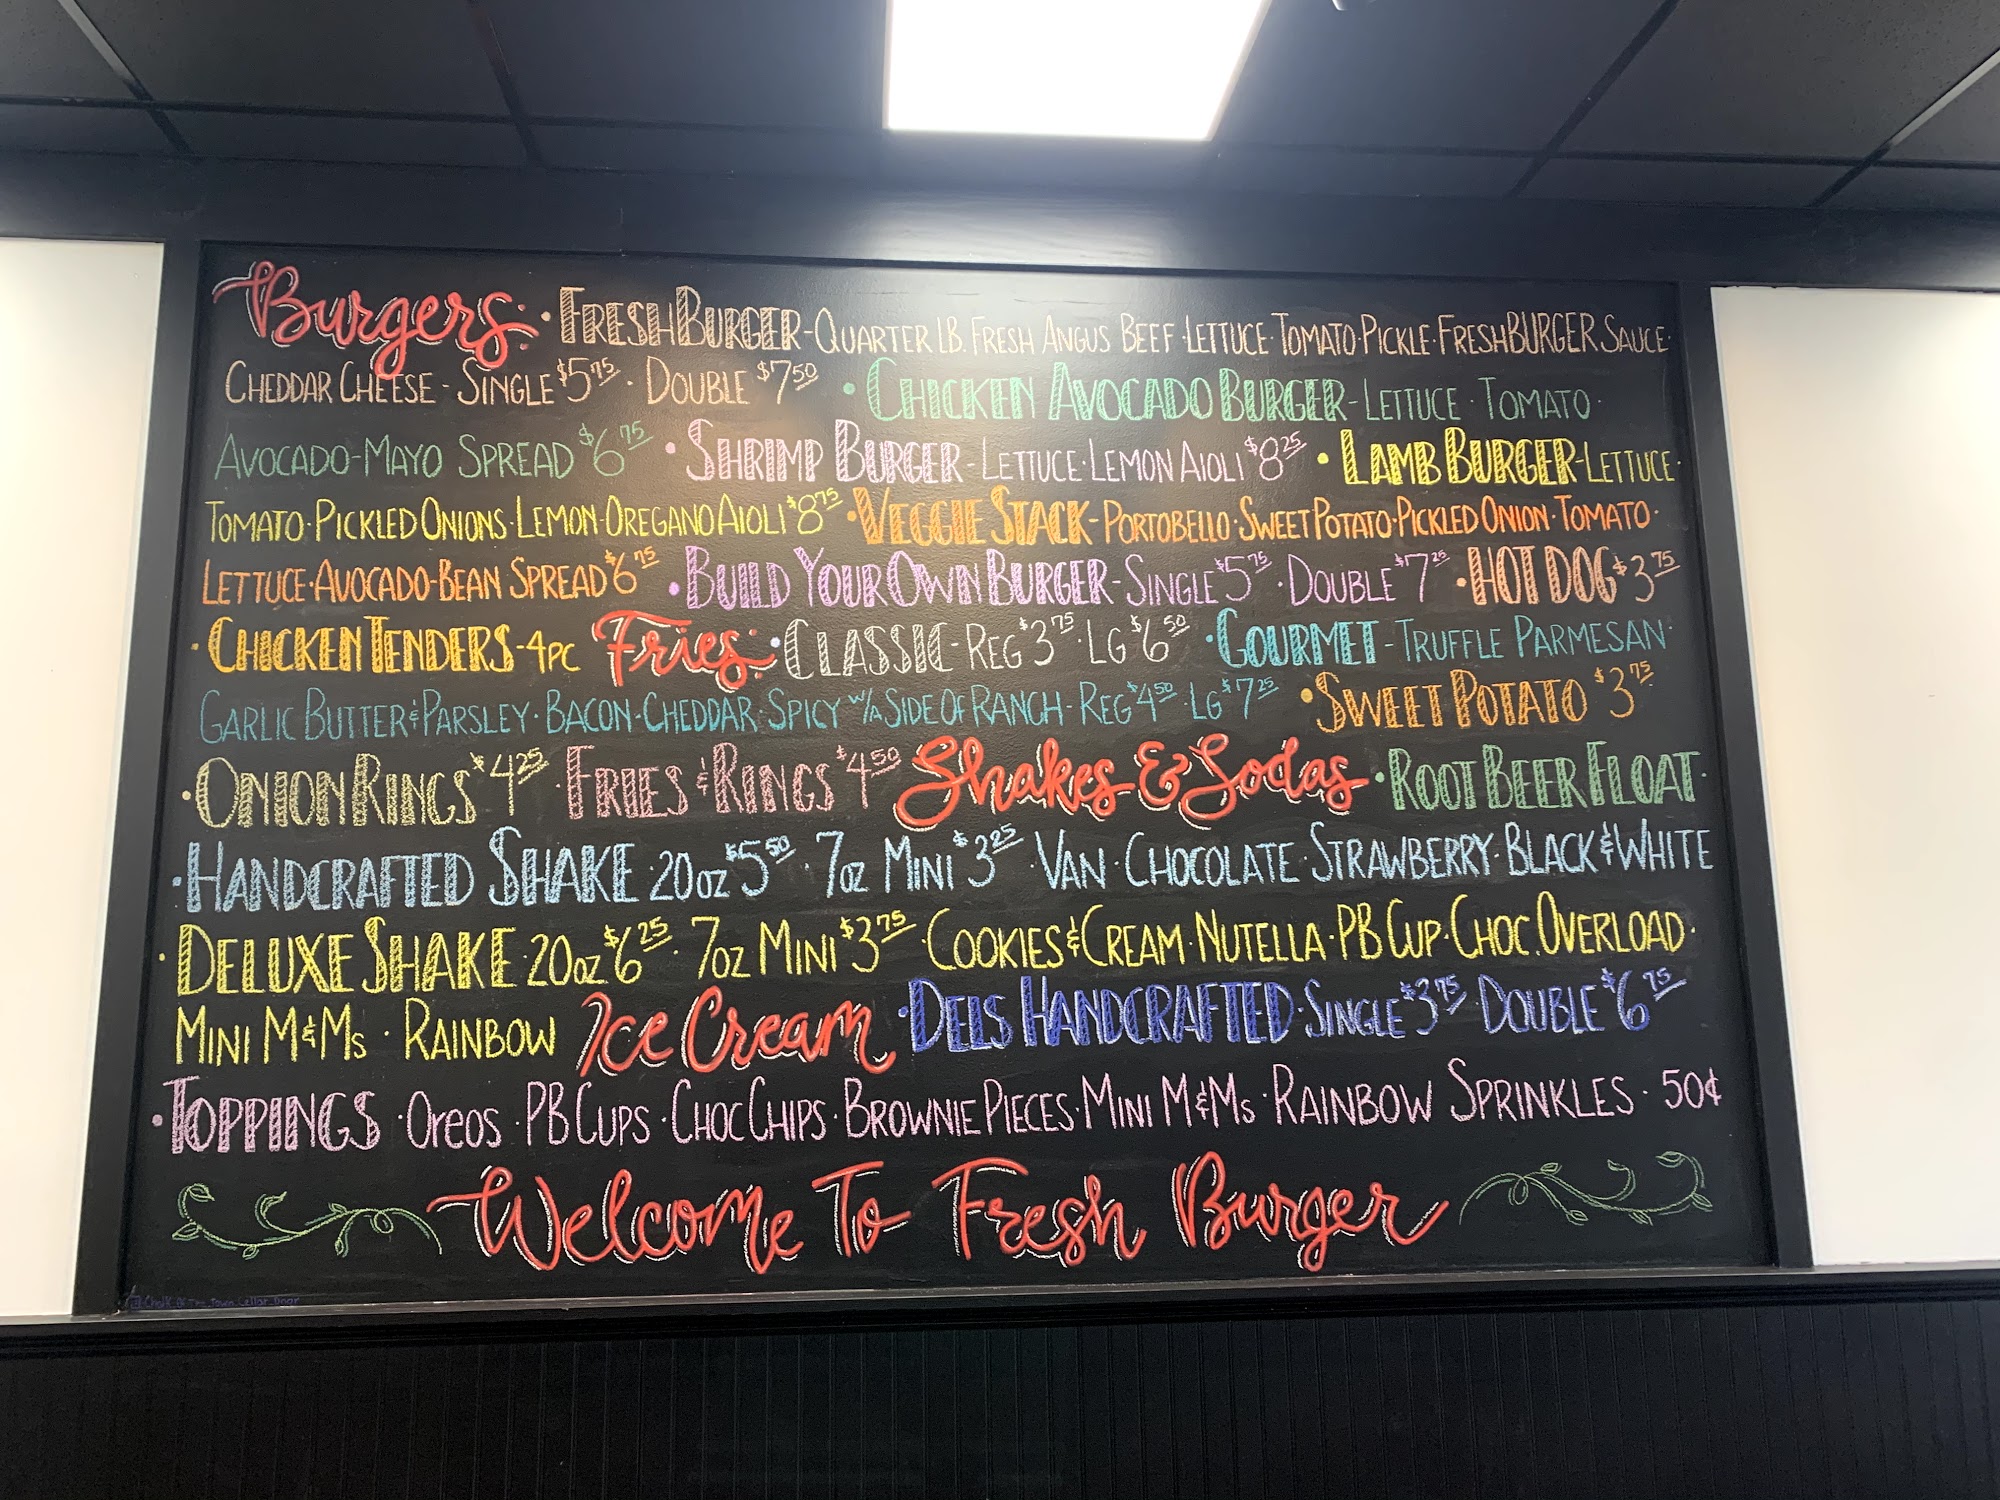 Burgers: · FRESHBURGER - QUARTER LB. FRESH ANGUS BEEF · LETTUCE · TOMATO · PICKLE · FRESHBURGER SAUCE ·
CHEDDAR CHEESE - SINGLE $5.75 · DOUBLE $7.50 · CHICKEN AVOCADO BURGER - LETTUCE · TOMATO ·
AVOCADO-MAYO SPREAD $6.75 · SHRIMP BURGER - LETTUCE · LEMON AIOLI $8.25 · LAMB BURGER - LETTUCE ·
TOMATO · PICKLED ONIONS · LEMON · OREGANO AIOLI $8.75 · VEGGIE STACK - PORTOBELLO · SWEET POTATO · PICKLED ONION · TOMATO ·
LETTUCE · AVOCADO-BEAN SPREAD $6.75 · BUILD YOUR OWN BURGER - SINGLE $5.75 · DOUBLE $7.25 · HOT DOG $3.75
· CHICKEN TENDERS - 4PC Fries: · CLASSIC - REG $3.75 · LG $6.50 · GOURMET - TRUFFLE PARMESAN ·
GARLIC BUTTER & PARSLEY · BACON-CHEDDAR · SPICY W/A SIDE OF RANCH - REG $4.50 · LG $7.25 · SWEET POTATO $3.75
· ONION RINGS $4.25 · FRIES & RINGS $4.50 Shakes & Sodas · ROOT BEER FLOAT ·
· HANDCRAFTED SHAKE · 20OZ $5.50 · 7OZ MINI $3.25 · VAN · CHOCOLATE · STRAWBERRY · BLACK & WHITE
· DELUXE SHAKE · 20OZ $6.25 · 7OZ MINI $3.75 · COOKIES & CREAM · NUTELLA · PB CUP · CHOC. OVERLOAD ·
MINI M&MS · RAINBOW Ice Cream · DELS HANDCRAFTED · SINGLE $3.75 DOUBLE $6.75
· TOPPINGS · OREOS · PB CUPS · CHOC CHIPS · BROWNIE PIECES · MINI M&MS · RAINBOW SPRINKLES · 50¢
Welcome To Fresh Burger